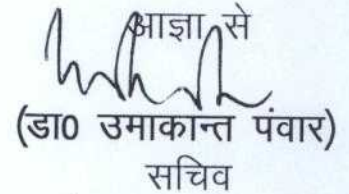 आज्ञा से
(डा0 उमाकान्त पंवार)
सचिव